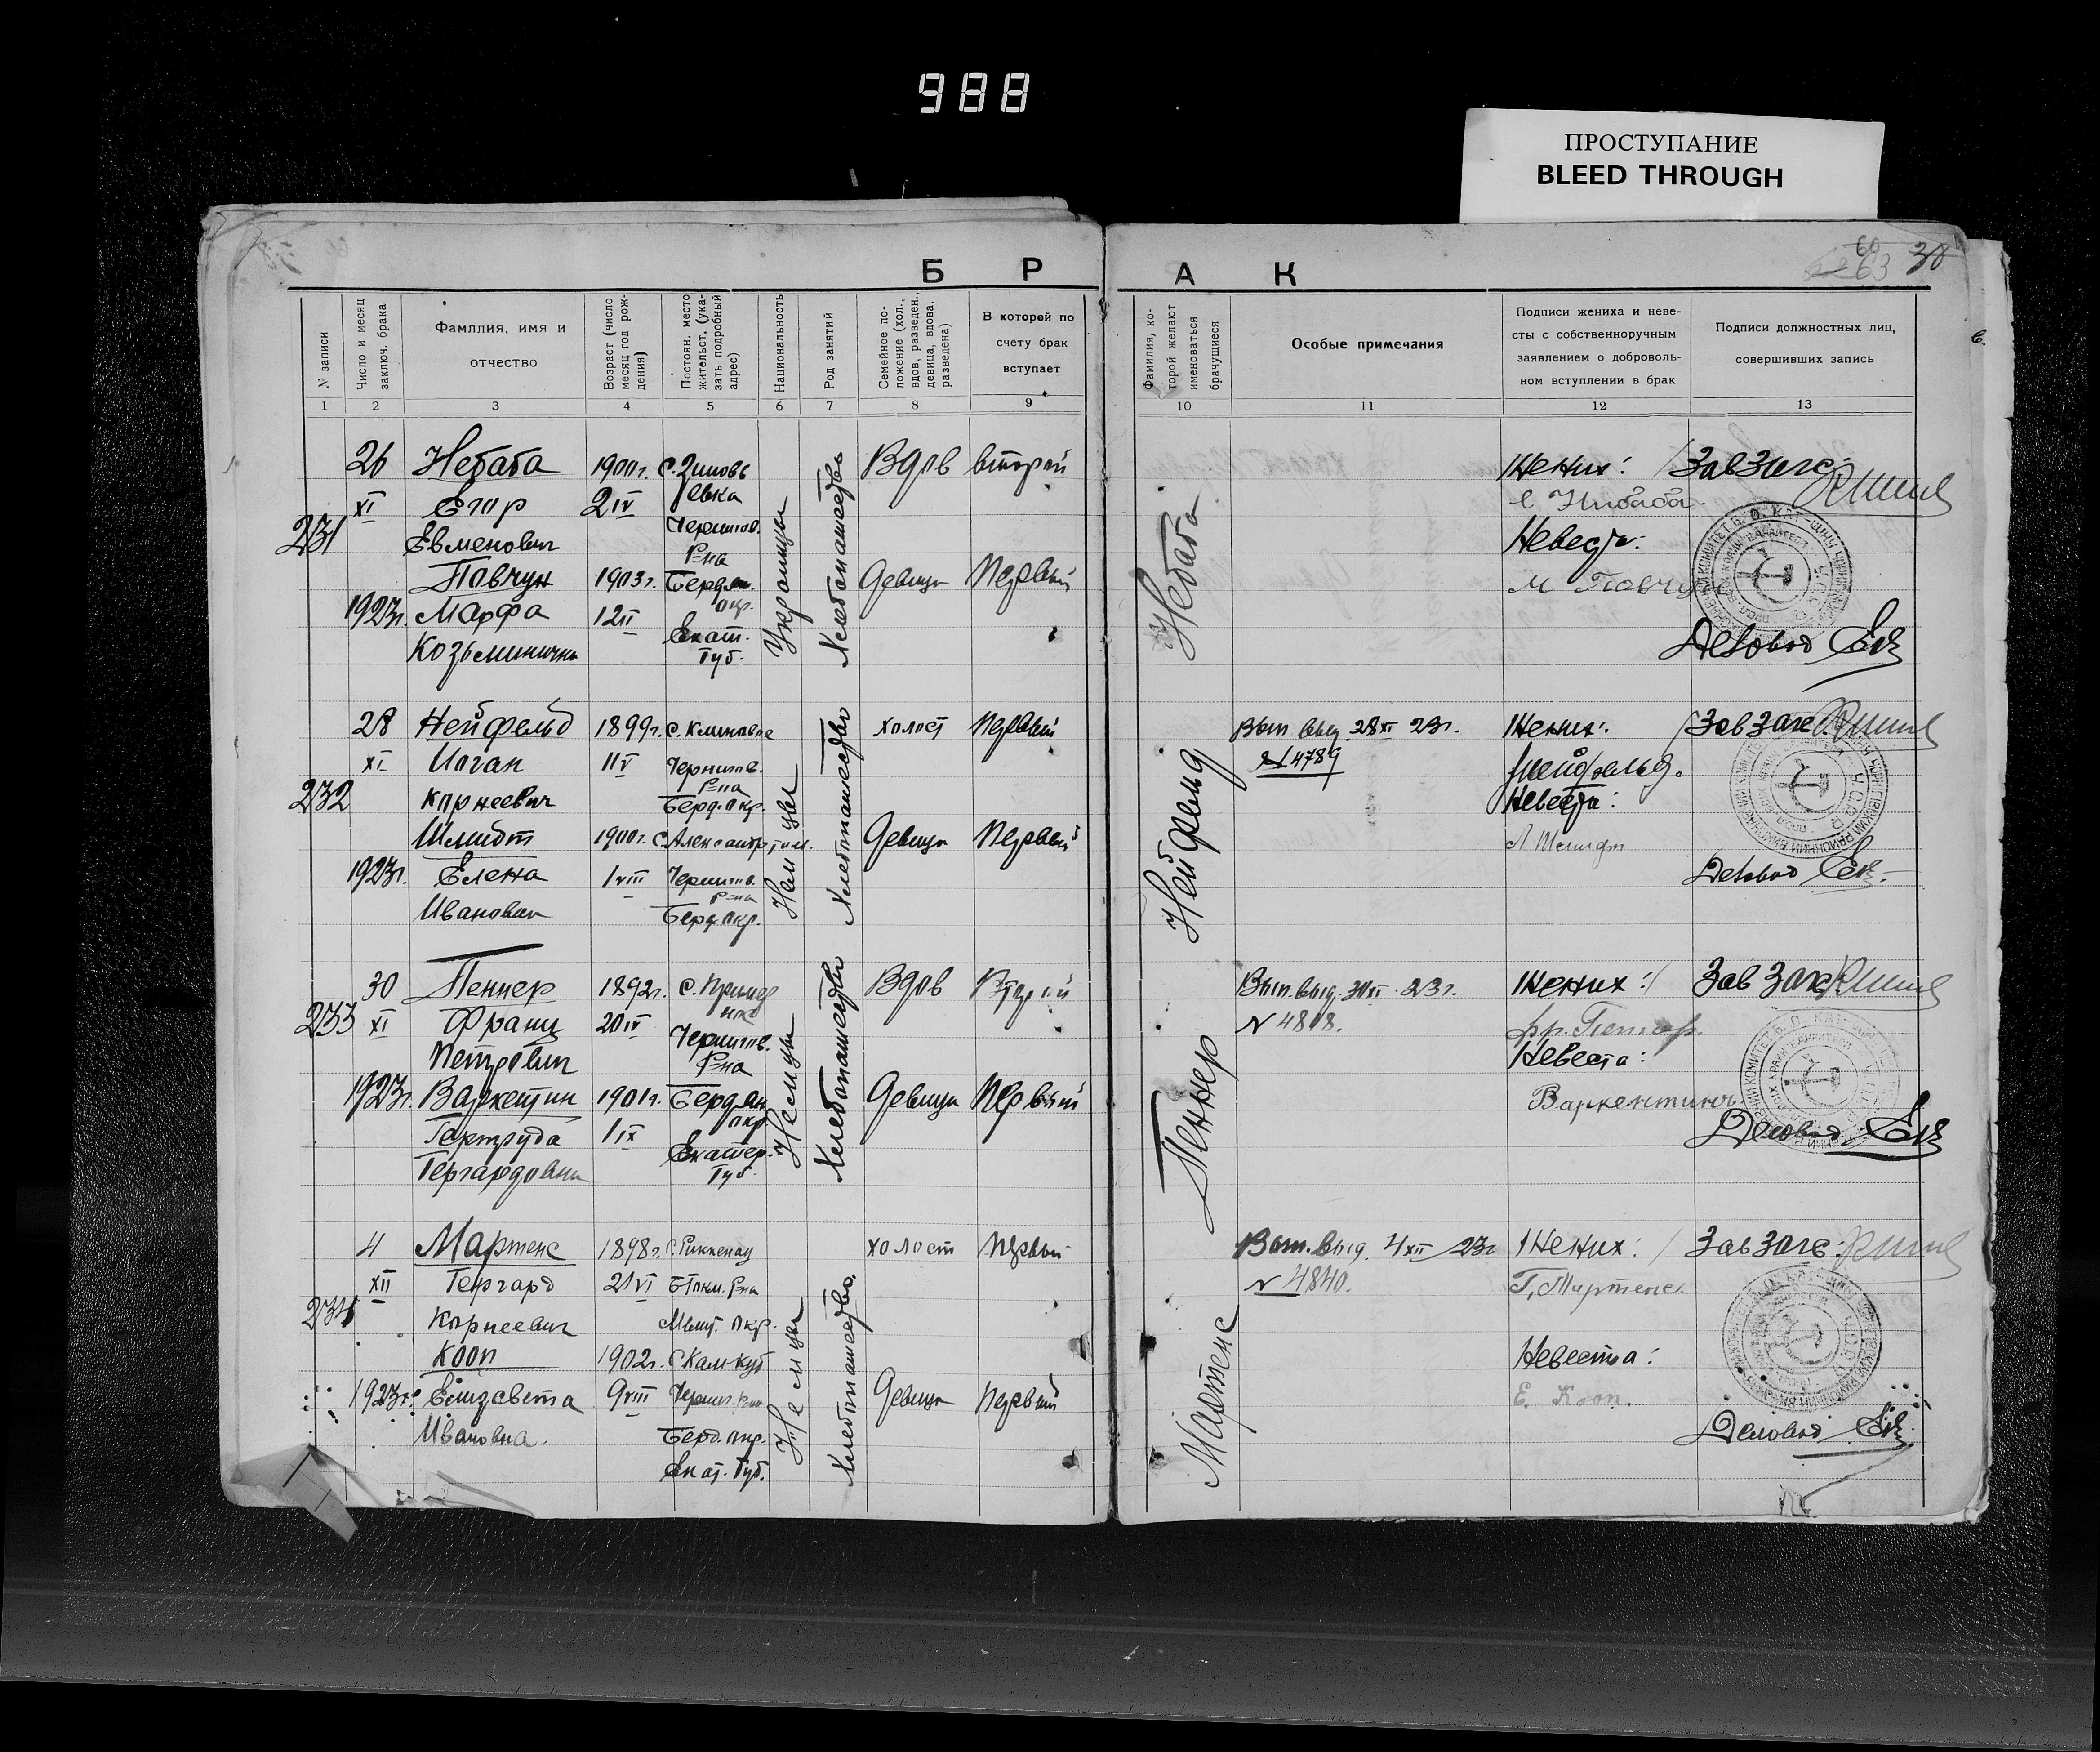 988
ПРОСТУПАНИЕ
BLEED THROUGH
63 38
Б Р А К
N записи
Число и месяц заключ. брака
Фамллия, имя и отчество
Возраст (число месяц год рождения)
Постоян. место жительст. (указать подробный адрес)
Национальность
Род занятий
Семейное положение (хол., вдов, разведен., девица, вдова, разведена)
В которой по счету брак вступает
Фамилия, которой желают именоваться брачущиеся
Особые примечания
Подписи жениха и невесты с собственноручным заявлением о добровольном вступлении в брак
Подписи должностных лиц, совершивших запись
1 2 3 4 5 6 7 8 9 10 11 12 13
231
26 XI 1923г.
Небаба
Егор
Евменович
1900г.
2 IV
Павчун
Марфа
Козьминична
1903г.
12 II
Чернигов.
Р-на
Бердян.
окр.
Екат.
Губ.
Украинцы
Хлебопашество
Вдов второй
Девица первый
Небаба
Жених:
Невеста:
М Павчун
Зав Загс
Деловод
232
28 XI 1923г.
Нейфельд
Иоган
Корнеевич
1899г.
11 V
Чернигов.
Р-на
Берд. окр.
Шмидт
Елена
Ивановна
1900г.
1 VIII
Чернигов.
Р-на
Берд. окр.
Немцы
Хлебопашество
холост первый
Девица первый
Нейфельд
Вып. выд. 28 XI 23г.
N 4789
Жених:
Нейфельд.
Невеста:
Шмидт
Зав Загс
Деловод
233
30 XI 1923г.
Пеннер
Франц
Петрович
1892г.
20 IV
Варкентин
Гертруда
Гергардовна
1901г.
1 IX
Чернигов.
Р-на
Бердян
окр.
Екатер.
Губ.
Немцы
Хлебопашество
Вдов Второй
Девица первый
Пеннер
Вып. выд. 30 XI 23г.
N 4818.
Жених:
Невеста:
Варкентин
Зав Загс
Деловод
234
4 XII 1923г.
Мартенс
Гергард
Корнеевич
1898г.
21 VI
С. Риккенау
Р-на
Мелит. окр.
Кооп
Елизавета
Ивановна.
1902г.
9 VIII
Берд. окр.
Екат. Губ.
Немцы
Хлебопашество.
холост первый
Девица первый
Мартенс
Вып. выд. 4 XII 23г
N 4840.
Жених:
Г. Мартенс.
Невеста:
Е. Кооп.
Зав Загс:
Деловод